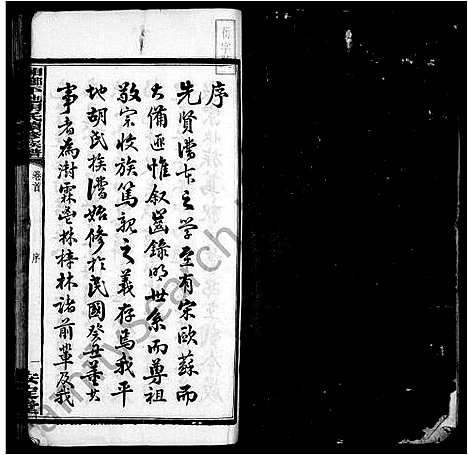 序
先賢譜牒之学至有宋歐蘇而
大備匪惟叙齒錄明世系而尊祖
敬宗收族篤親之義存焉我平
地胡氏族譜始修於民國癸丑董其
事者為澍霖 林梓林諸前輩及我
卷首
序
一
安定堂
FamilySearch